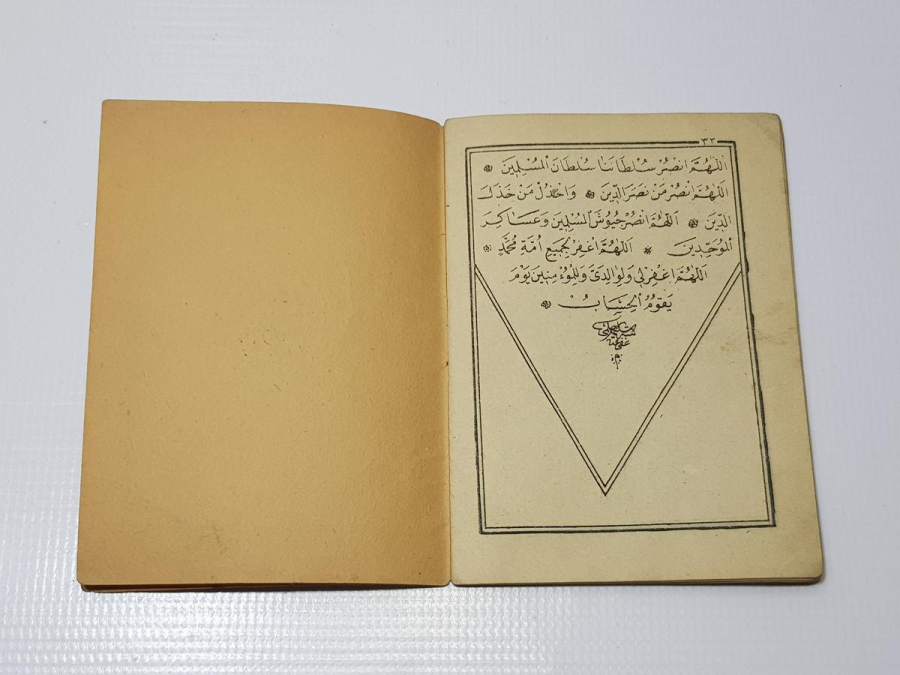 ٣٢
اَللّٰهُمَّ انْصُرْ سُلْطَانَنَا سُلْطَانَ الْمُسْلِمِينَ
اَللّٰهُمَّ انْصُرْ مَنْ نَصَرَ الدِّينَ وَاخْذُلْ مَنْ خَذَلَ
الدِّينَ اَللّٰهُمَّ انْصُرْ جُيُوشَ الْمُسْلِمِينَ وَعَسَاكِرَ
الْمُوَحِّدِينَ اَللّٰهُمَّ اغْفِرْ لِجَمِيعِ اُمَّةِ مُحَمَّدٍ
اَللّٰهُمَّ اغْفِرْلِى وَلِوَالِدَىَّ وَلِلْمُؤْمِنِينَ يَوْمَ
يَقُومُ الْحِسَابُ